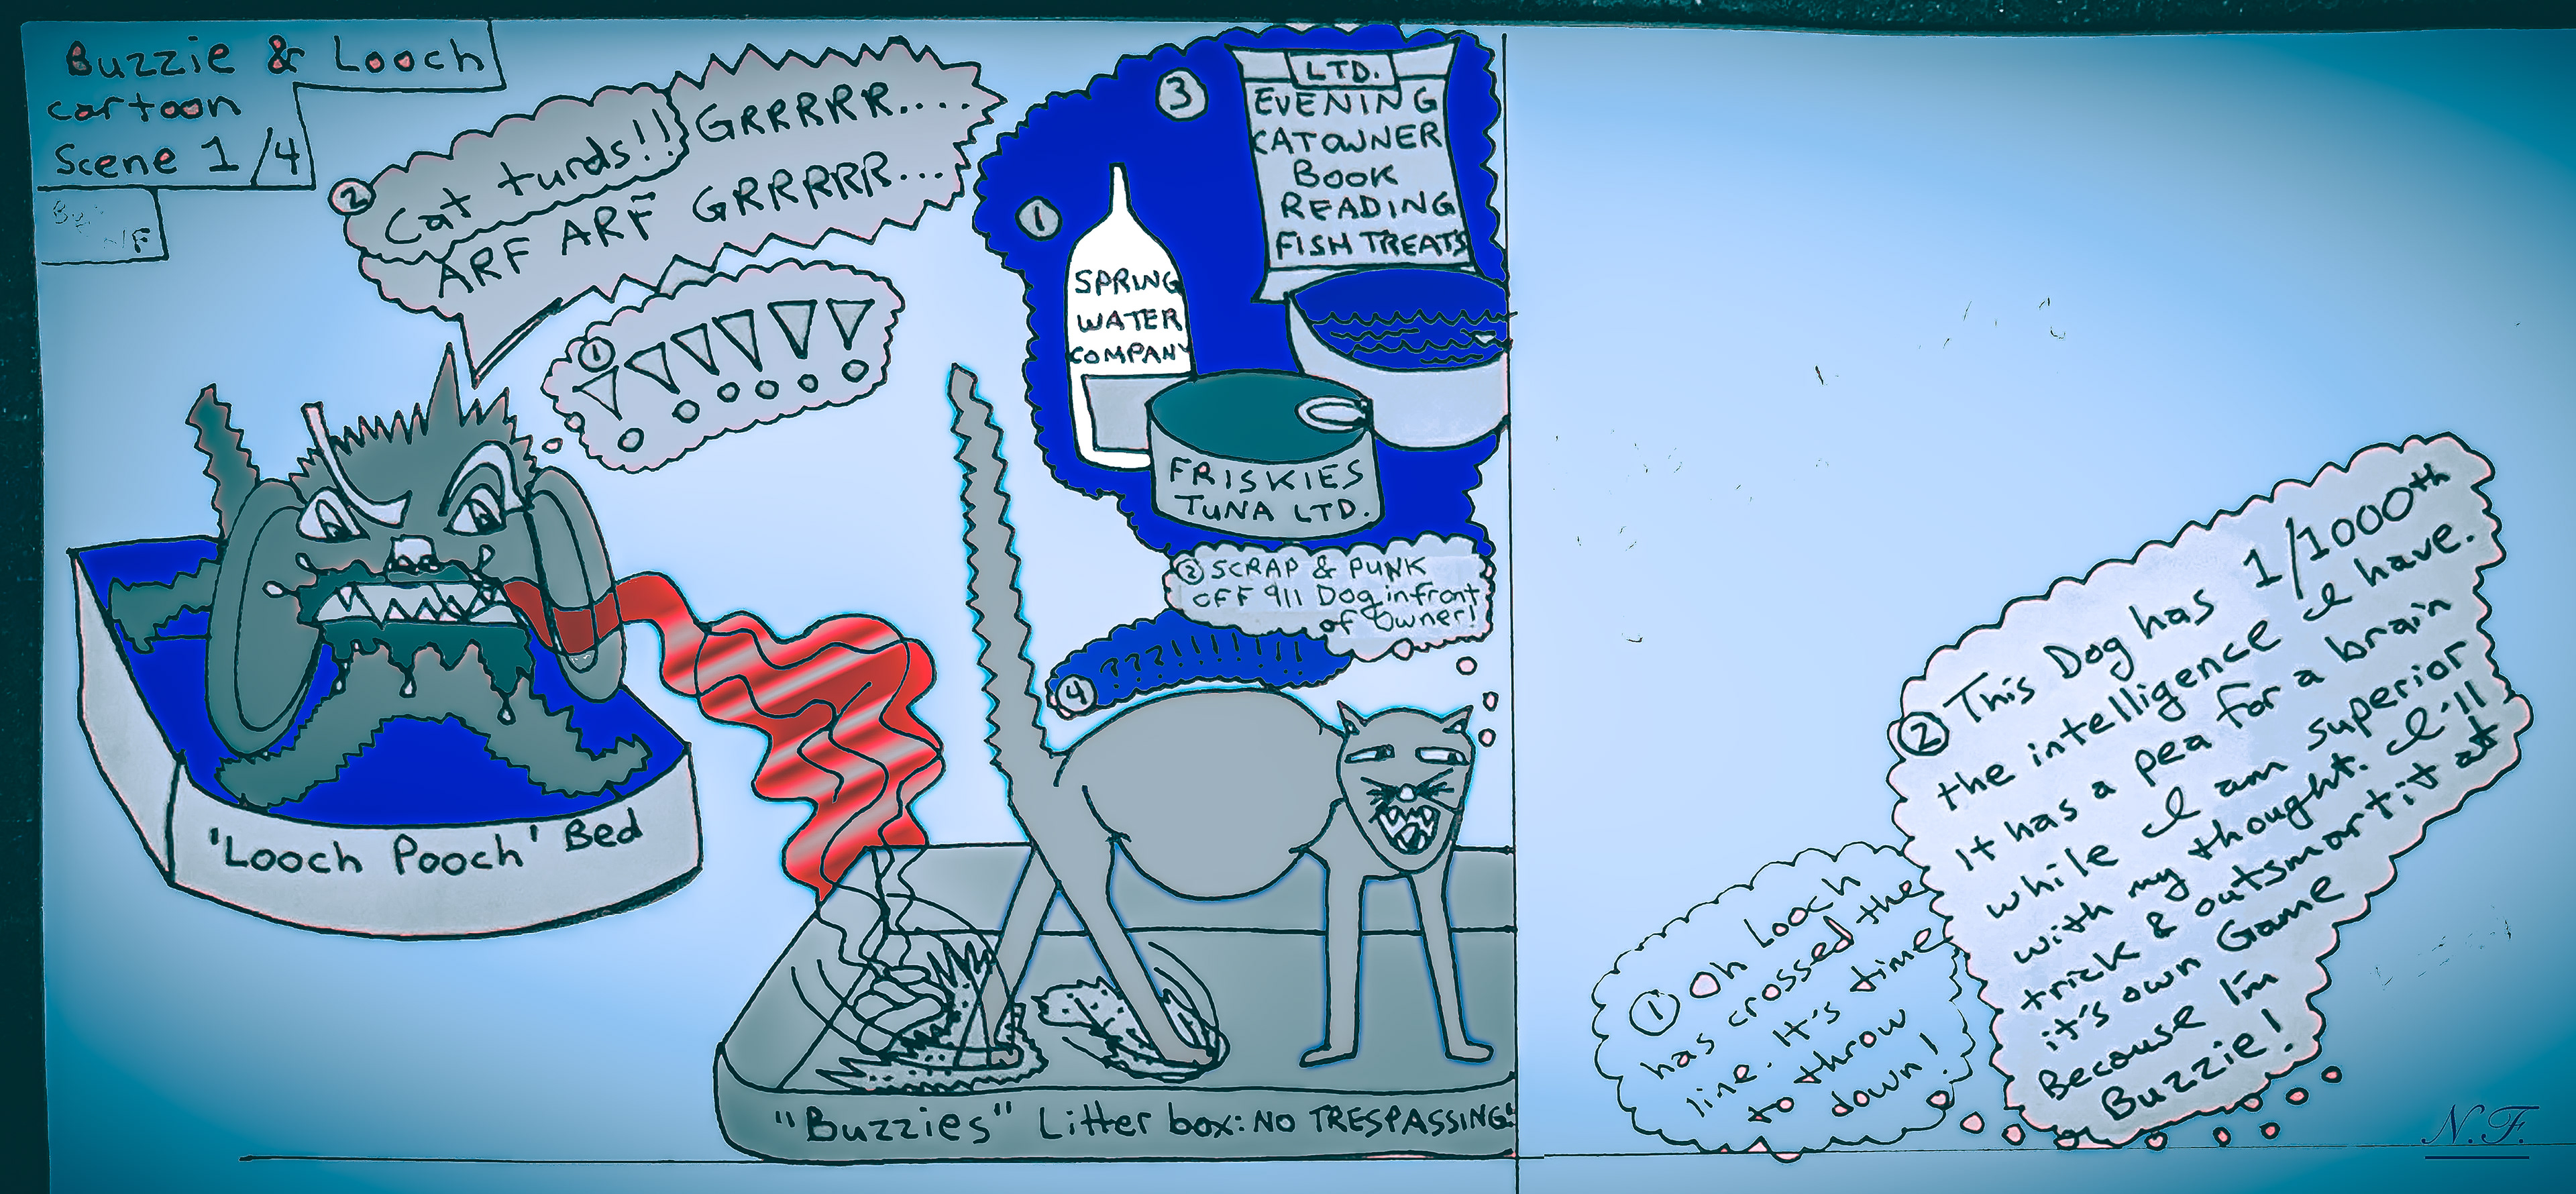 Buzzie & Looch
cartoon
Scene 1/4
NF
② Cat turds!! GRRRRR....
ARF ARF GRRRRR...
① !!!!!!
①
SPRING
WATER
COMPANY
③
LTD.
EVENING
CATOWNER
BOOK
READING
FISH TREATS
FRISKIES
TUNA LTD.
② SCRAP & PUNK
OFF 911 Dog infront
of Owner!
④ ???!!!!!!!
'Looch Pooch' Bed
"Buzzies" Litter box: NO TRESPASSING!
① Oh Looch
has crossed the
line. It's time
to throw
down!
② This Dog has 1/1000th
the intelligence I have.
It has a pea for a brain
while I am superior
with my thought. I'll
trick & outsmart it at
it's own Game
Because I'm
Buzzie!
N.F.